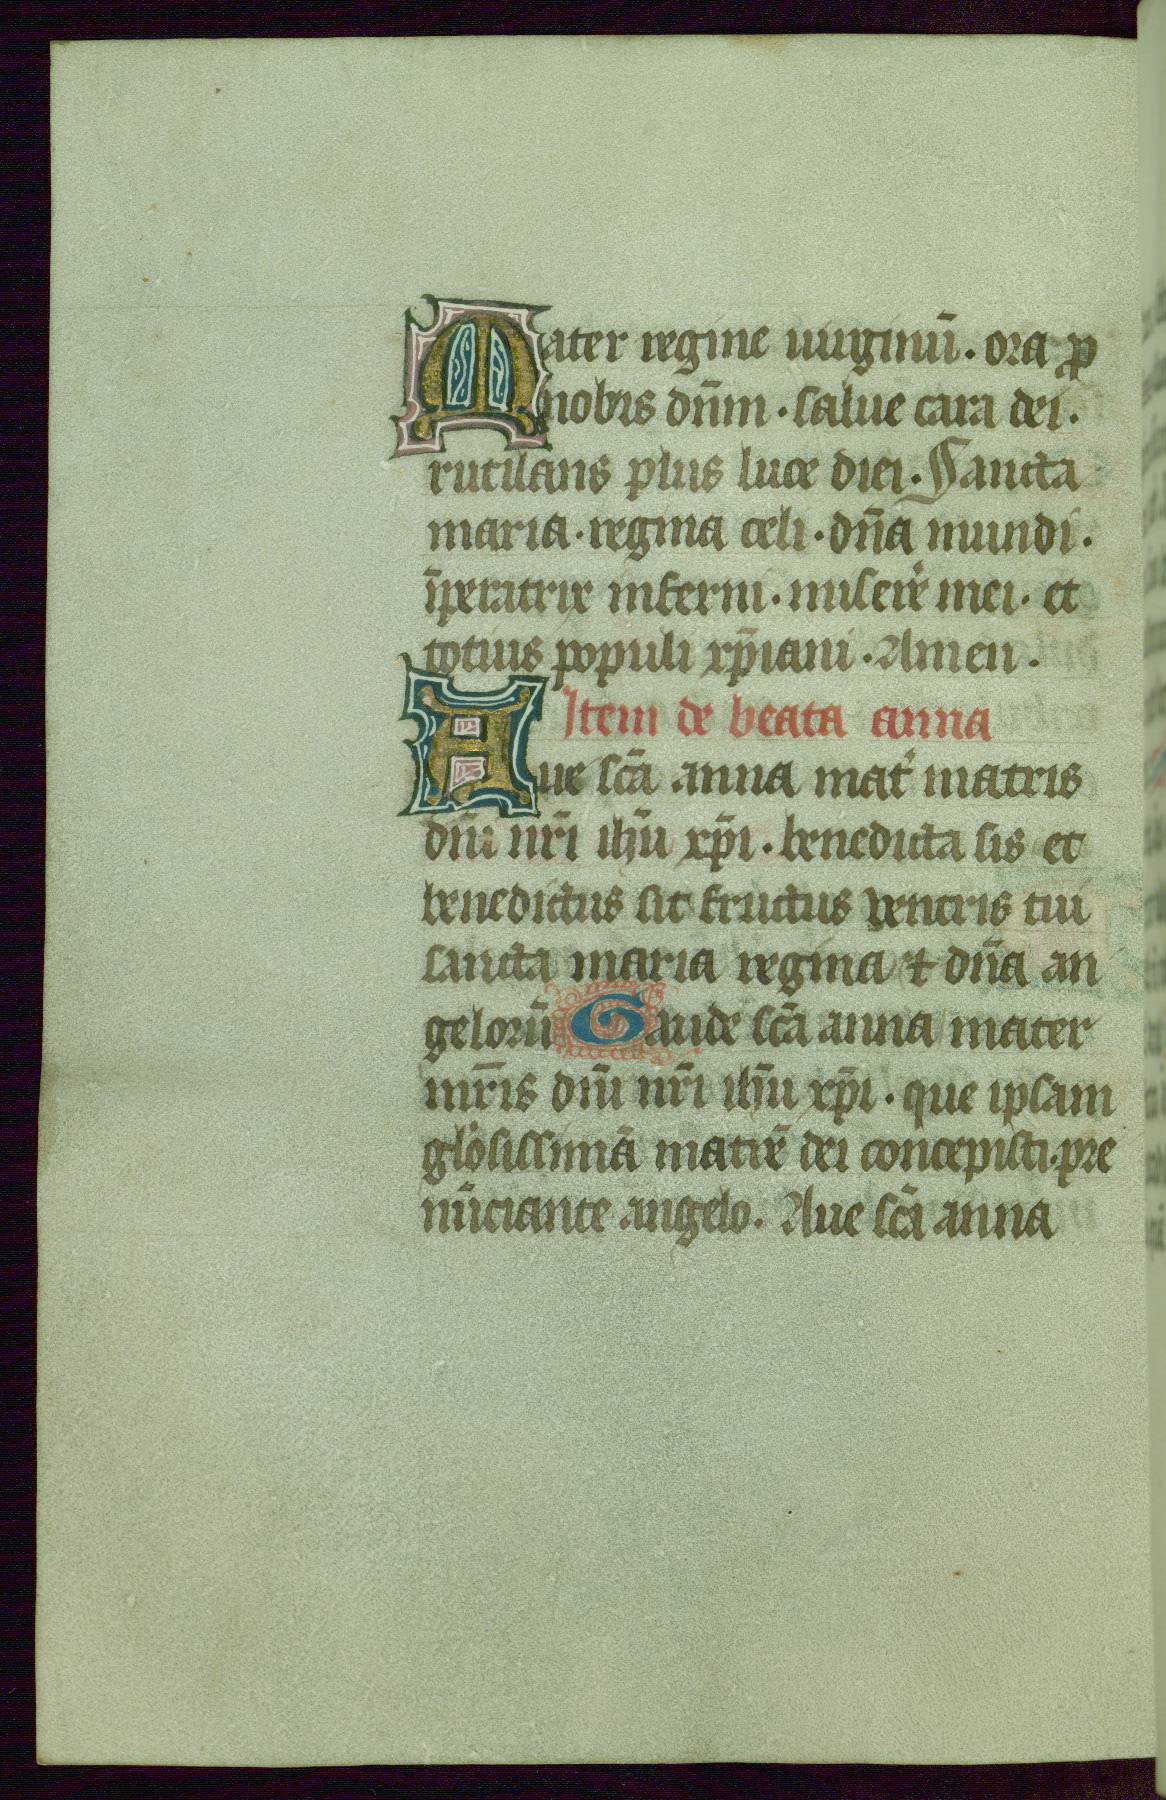 Mater regine uirginū. ora ꝓ
nobis dn̄m. salue cara dei.
rutilans plus luce diei. Sancta
maria. regina celi. dn̄a mundi.
īperatrix inferni. miserē mei. et
totius populi xp̄iani. Amen.
Item de beata anna
Aue sc̄a anna mat̄ matris
dn̄i nr̄i ih̄u xp̄i. benedicta sis et
benedictus sit fructus ventris tui
sancta maria regina ⁊ dn̄a an
gelorū Gaude sc̄a anna mater
mr̄is dn̄i nr̄i ih̄u xp̄i. que ipsam
gl̄osissimā matrē dei concepisti. pre
nūciante angelo. Aue sc̄a anna